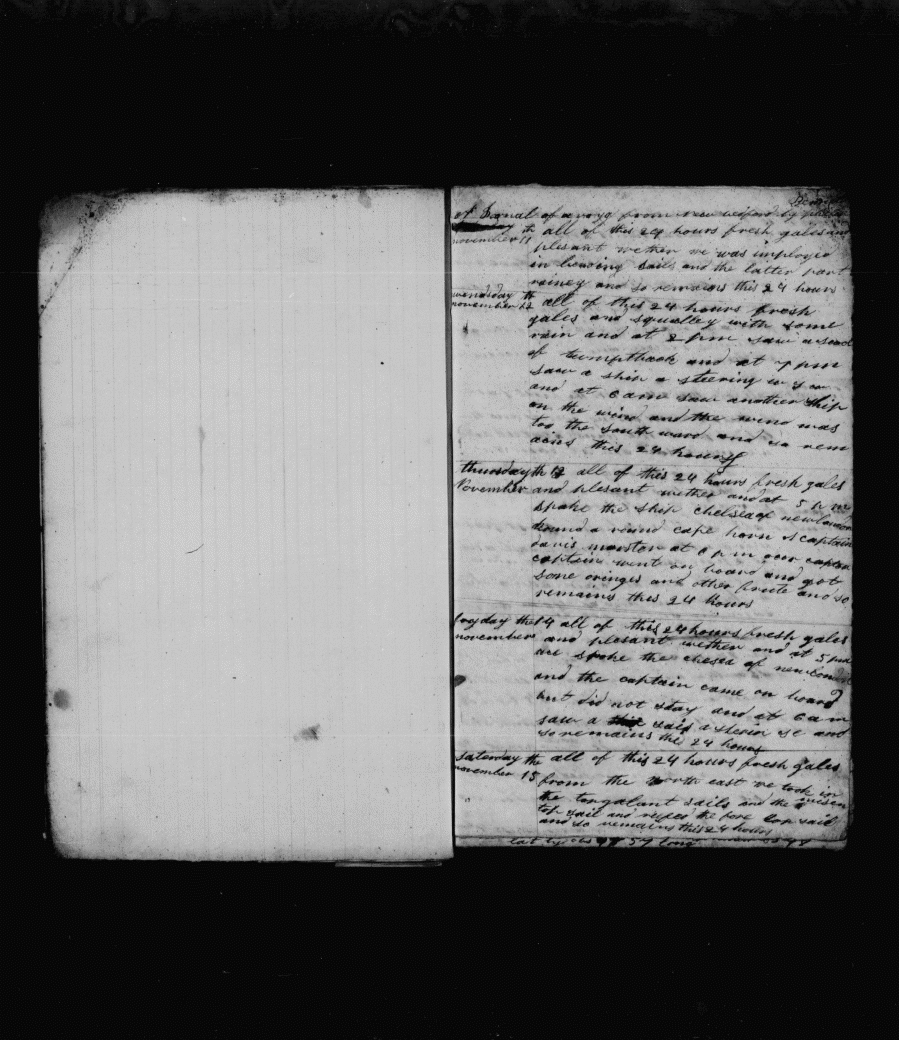 of Jornal of a voyg from new bedford by
november 11 th all of this 24 hours fresh gales and
plesant wether we was imployed
in bowing sails and the latter part
rainey and so remains this 24 hours
wendsday th
november 12 all of this 24 hours fresh
gales and squalley with some
rain and at 2 pm saw a scool
of humpthack and at 7 pm
saw a ship a steering w s w
and at 6 am saw another ship
on the wind and the wind was
too the south ward and so rem
aens this 24 hours
thursday th 13 all of this 24 hours fresh gales
November and plesant wether and at 5 p m
spoke the ship chelsea of newlondon
bound a round cape horn captain
davis at 6 p m over
captain went on board and got
some oringes and other frute and so
remains this 24 hours
fryday the 14 all of this 24 hours fresh gales
november and plesant wether and at 5 pm
spoke the chesea of newlondon
and the captain came on board
but did not stay and at 6 am
saw a sail a sterin se and
so remains the 24 hours
saterday the all of this 24 hours fresh gales
november 15 from the north east we took in
the torgalant sails and the misen
top sail and refed the fore top sail
and so remains this 24 hours
lat by obs 57 long